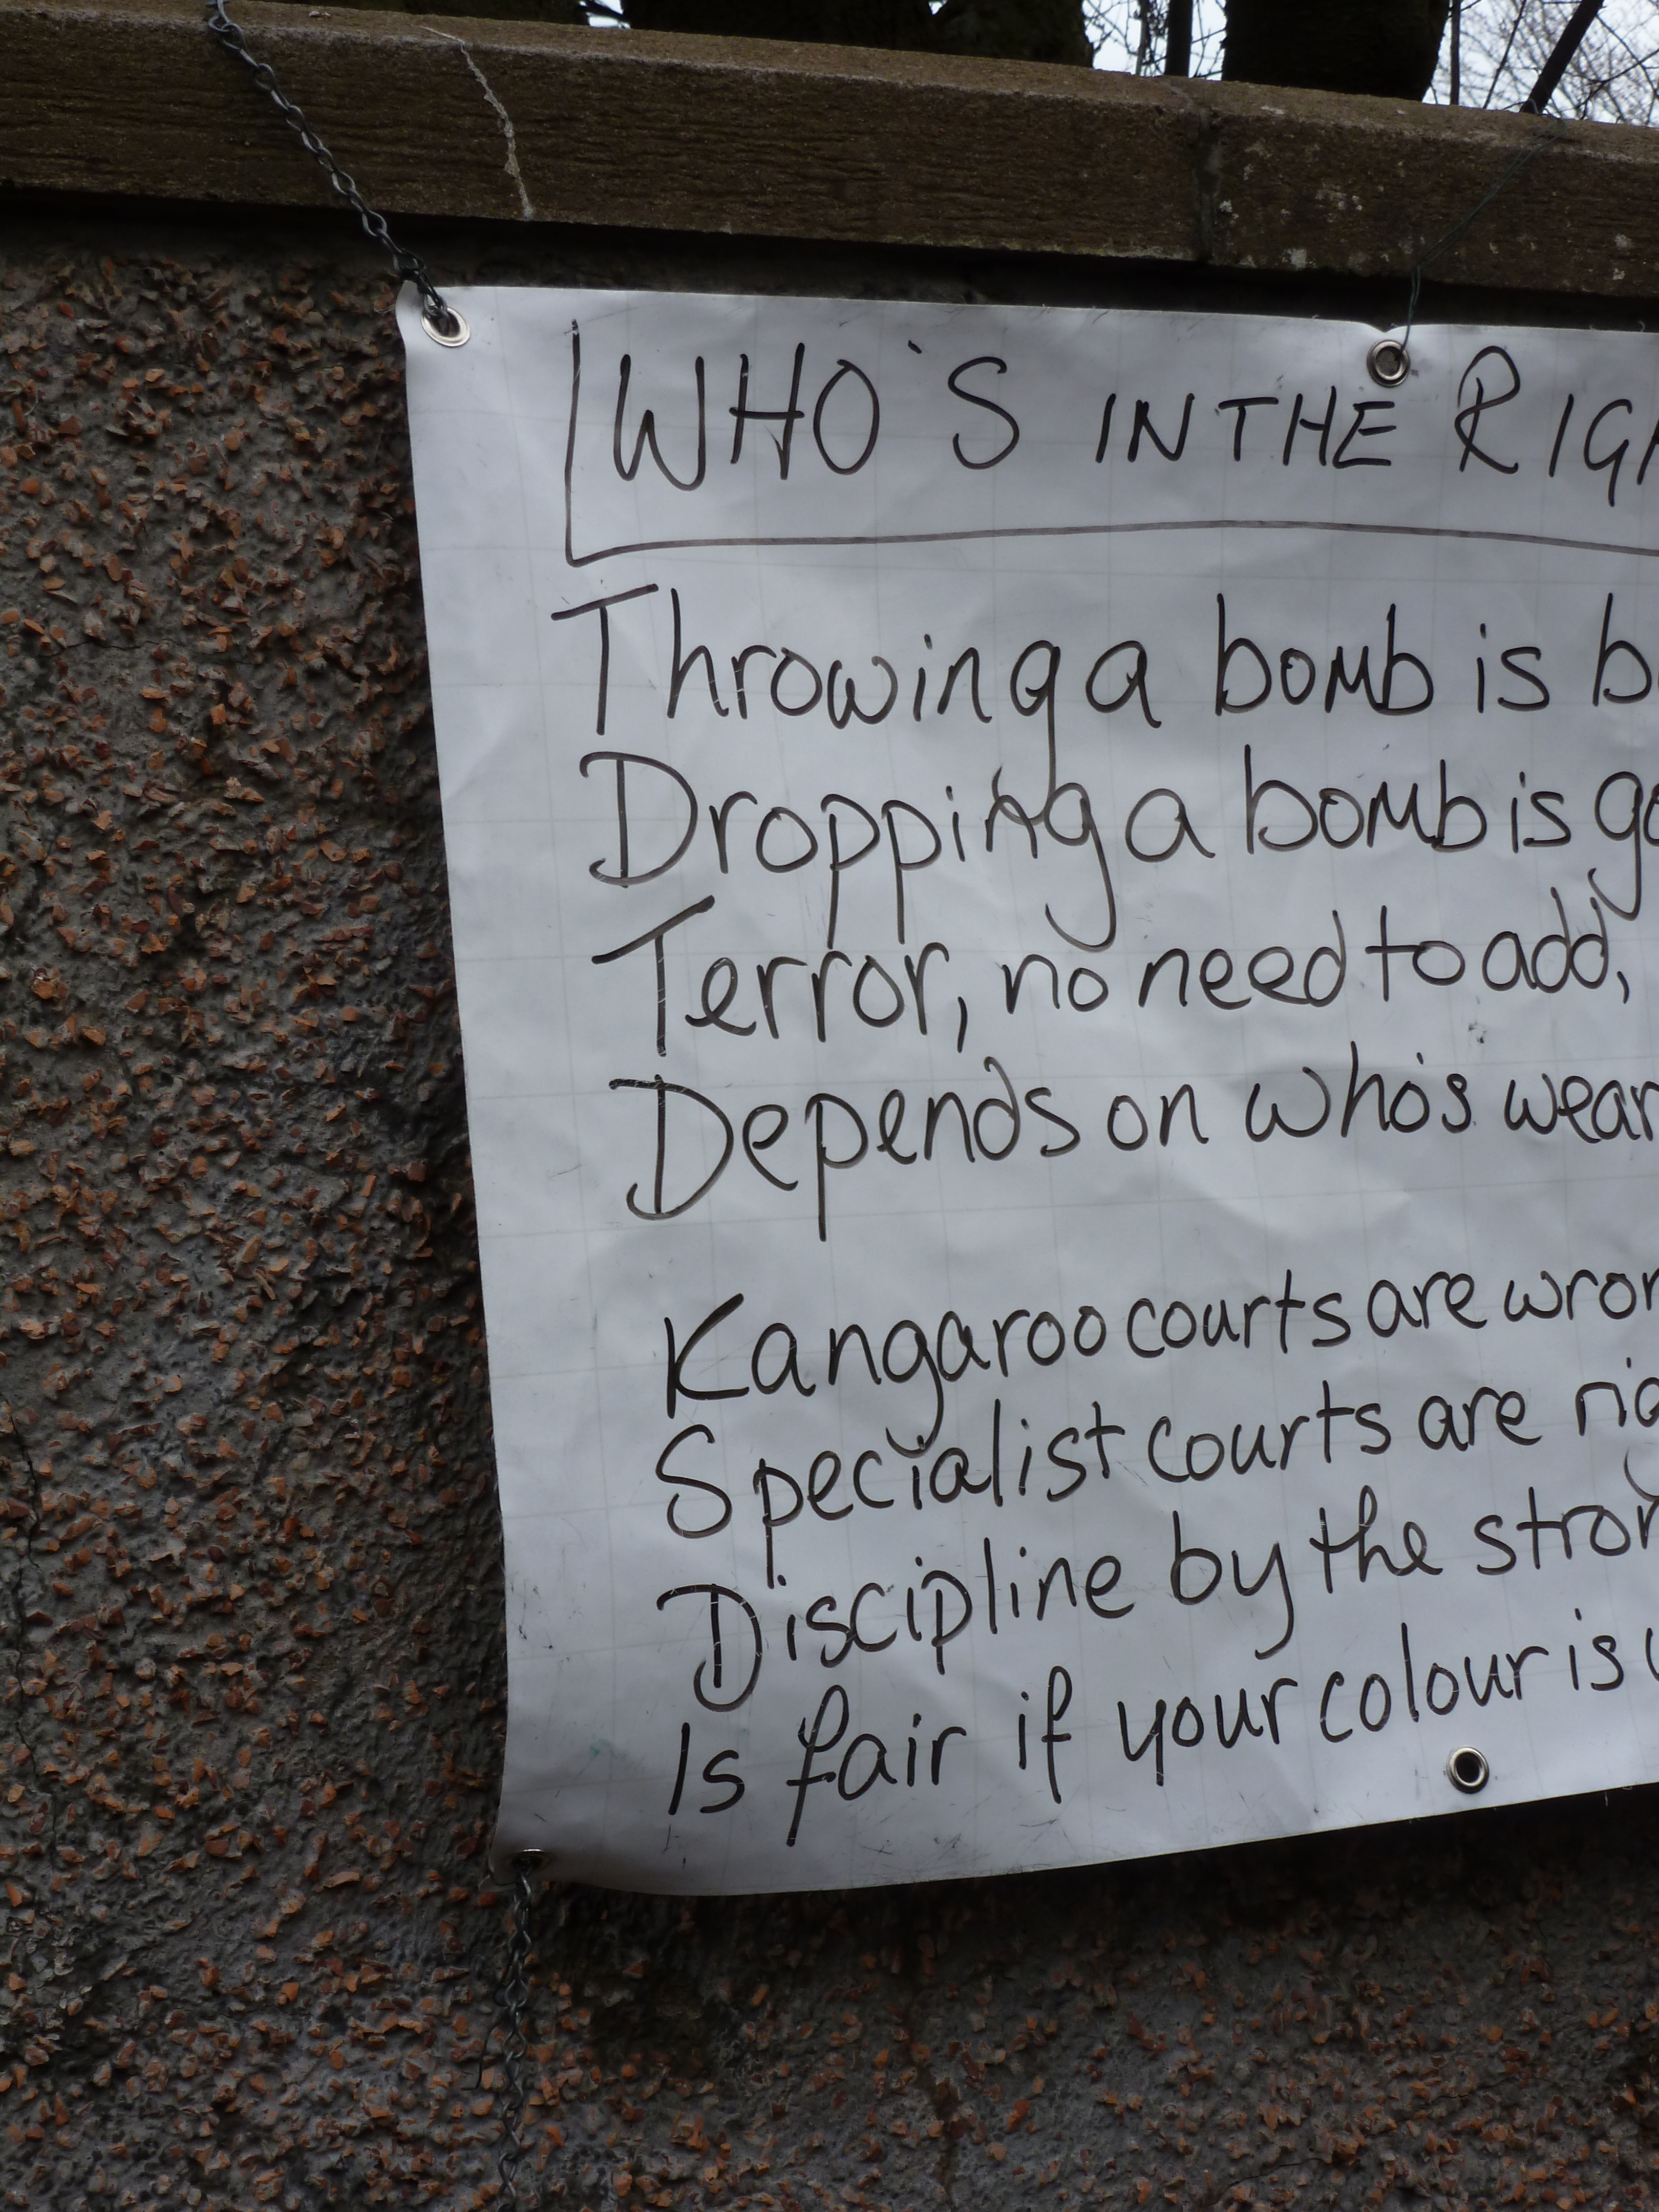 WHO'S IN THE
Throwing a bomb is
Dropping a bomb is
Terror, no need to add,
Depends on who's
Kangaroo courts are
Specialist courts are
Discipline by the
Is fair if your colour is